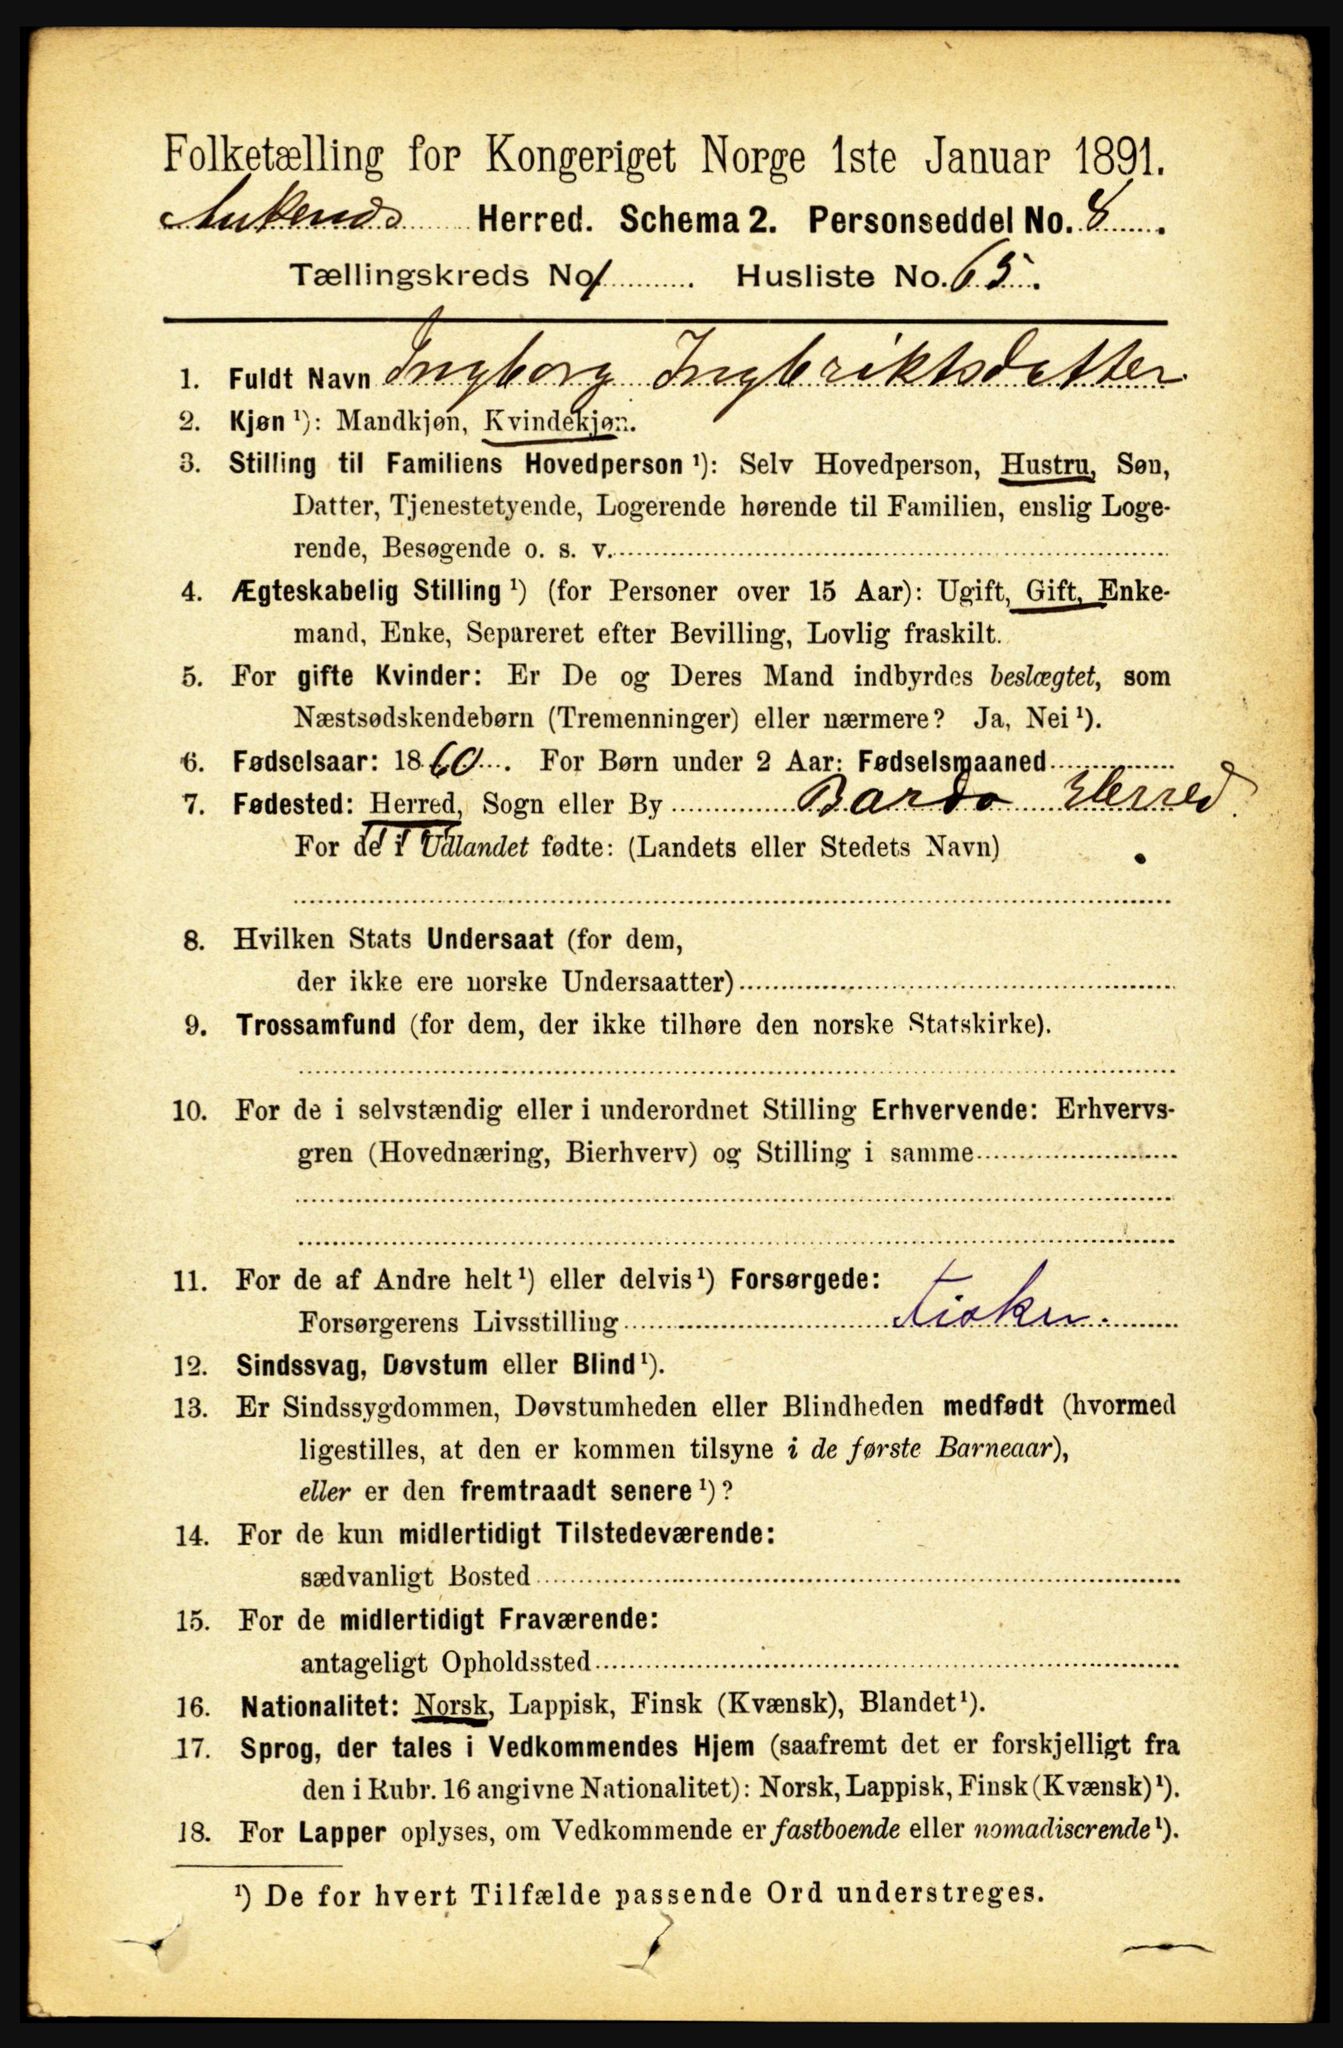 Folketælling for Kongeriget Norge 1ste Januar 1891.
Ankenes Herred. Schema 2. Personseddel No. 8.
Tællingskreds No. 1. Husliste No. 65.
1. Fuldt Navn Ingborg Ingbriktsdatter
2. Kjøn ¹): Mandkjøn, Kvindekjøn.
3. Stilling til Familiens Hovedperson ¹): Selv Hovedperson, Hustru, Søn,
Datter, Tjenestetyende, Logerende hørende til Familien, enslig Loge-
rende, Besøgende o. s. v.
4. Ægteskabelig Stilling ¹) (for Personer over 15 Aar): Ugift, Gift, Enke-
mand, Enke, Separeret efter Bevilling, Lovlig fraskilt.
5. For gifte Kvinder: Er De og Deres Mand indbyrdes beslægtet, som
Næstsødskendebørn (Tremenninger) eller nærmere? Ja, Nei ¹).
6. Fødselsaar: 1860. For Børn under 2 Aar: Fødselsmaaned
7. Fødested: Herred, Sogn eller By Bardo Herred.
For de i Udlandet fødte: (Landets eller Stedets Navn)
8. Hvilken Stats Undersaat (for dem,
der ikke ere norske Undersaatter)
9. Trossamfund (for dem, der ikke tilhøre den norske Statskirke).
10. For de i selvstændig eller i underordnet Stilling Erhvervende: Erhvervs-
gren (Hovednæring, Bierhverv) og Stilling i samme
11. For de af Andre helt ¹) eller delvis ¹) Forsørgede:
Forsørgerens Livsstilling Fisker.
12. Sindssvag, Døvstum eller Blind ¹).
13. Er Sindssygdommen, Døvstumheden eller Blindheden medfødt (hvormed
ligestilles, at den er kommen tilsyne i de første Barneaar),
eller er den fremtraadt senere ¹)?
14. For de kun midlertidigt Tilstedeværende:
sædvanligt Bosted
15. For de midlertidigt Fraværende:
antageligt Opholdssted
16. Nationalitet: Norsk, Lappisk, Finsk (Kvænsk), Blandet ¹).
17. Sprog, der tales i Vedkommendes Hjem (saafremt det er forskjelligt fra
den i Rubr. 16 angivne Nationalitet): Norsk, Lappisk, Finsk (Kvænsk) ¹).
18. For Lapper oplyses, om Vedkommende er fastboende eller nomadiserende ¹).
¹) De for hvert Tilfælde passende Ord understreges.